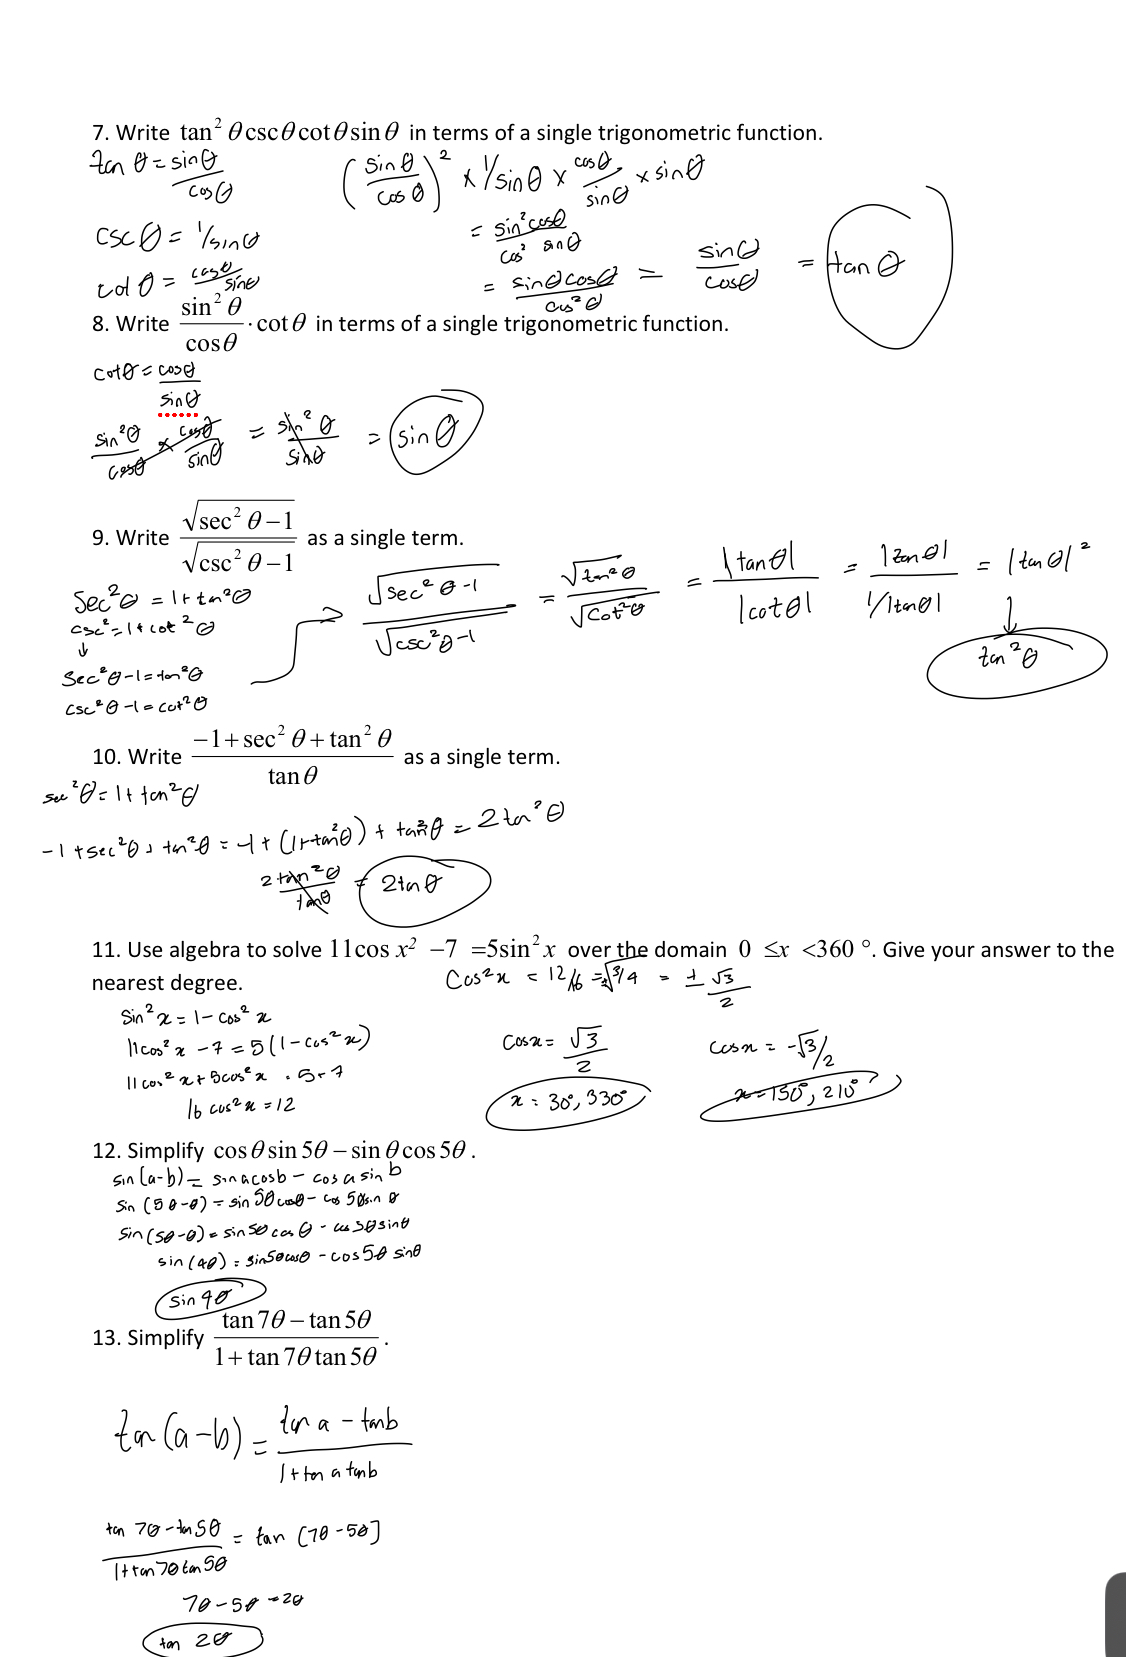 7. Write tan² θ cscθ cotθ sinθ in terms of a single trigonometric function.
tan θ = sinθ/cosθ
(sinθ/cosθ)² × 1/sinθ × cosθ/sinθ × sinθ
cscθ = 1/sinθ
= sin²cosθ/cos² sinθ
cot θ = cosθ/sinθ
= sinθcosθ/cos²θ = sinθ/cosθ = tan θ
8. Write sin² θ/cosθ · cotθ in terms of a single trigonometric function.
cotθ = cosθ/sinθ
sin²θ/cosθ × cosθ/sinθ = sin²θ/sinθ = sinθ
9. Write √(sec² θ − 1)/√(csc² θ − 1) as a single term.
Sec²θ = 1+tan²θ
csc² = 1+cot²θ
↓
Sec²θ−1 = tan²θ
csc²θ−1 = cot²θ
√(sec²θ−1)/√(csc²θ−1) = √tan²θ/√cot²θ = |tanθ|/|cotθ| = |tanθ|/1/|tanθ| = |tanθ|²
↓
tan²θ
10. Write (−1 + sec² θ + tan² θ)/tanθ as a single term.
sec²θ = 1+ tan²θ
−1 + sec²θ + tan²θ = −1 + (1+tan²θ) + tan²θ = 2tan²θ
2tan²θ/tanθ = 2tanθ
11. Use algebra to solve 11cos x² −7 =5sin² x over the domain 0 ≤x <360 °. Give your answer to the
nearest degree.
Cos²x = 12/16 = √3/4 = ± √3/2
Sin²x = 1− cos²x
11cos²x −7 = 5(1−cos²x)
11cos²x + 5cos²x = 5+7
16 cos²x = 12
cosx = √3/2
x = 30°, 330°
cosx = −√3/2
x = 150°, 210°
12. Simplify cosθ sin 5θ − sinθ cos5θ .
sin(a−b) = sinacosb − cosasinb
Sin (5θ−θ) = sin5θcosθ − cos5θsinθ
Sin(5θ−θ) = sin5θ cosθ − cos5θsinθ
sin(4θ) = sin5θcosθ − cos5θ sinθ
sin 4θ
13. Simplify (tan 7θ − tan 5θ)/(1 + tan 7θ tan 5θ) .
tan(a−b) = tan a − tanb/1+tan a tanb
tan 7θ−tan5θ/1+tan7θtan5θ = tan (7θ−5θ)
7θ−5θ = 2θ
tan 2θ